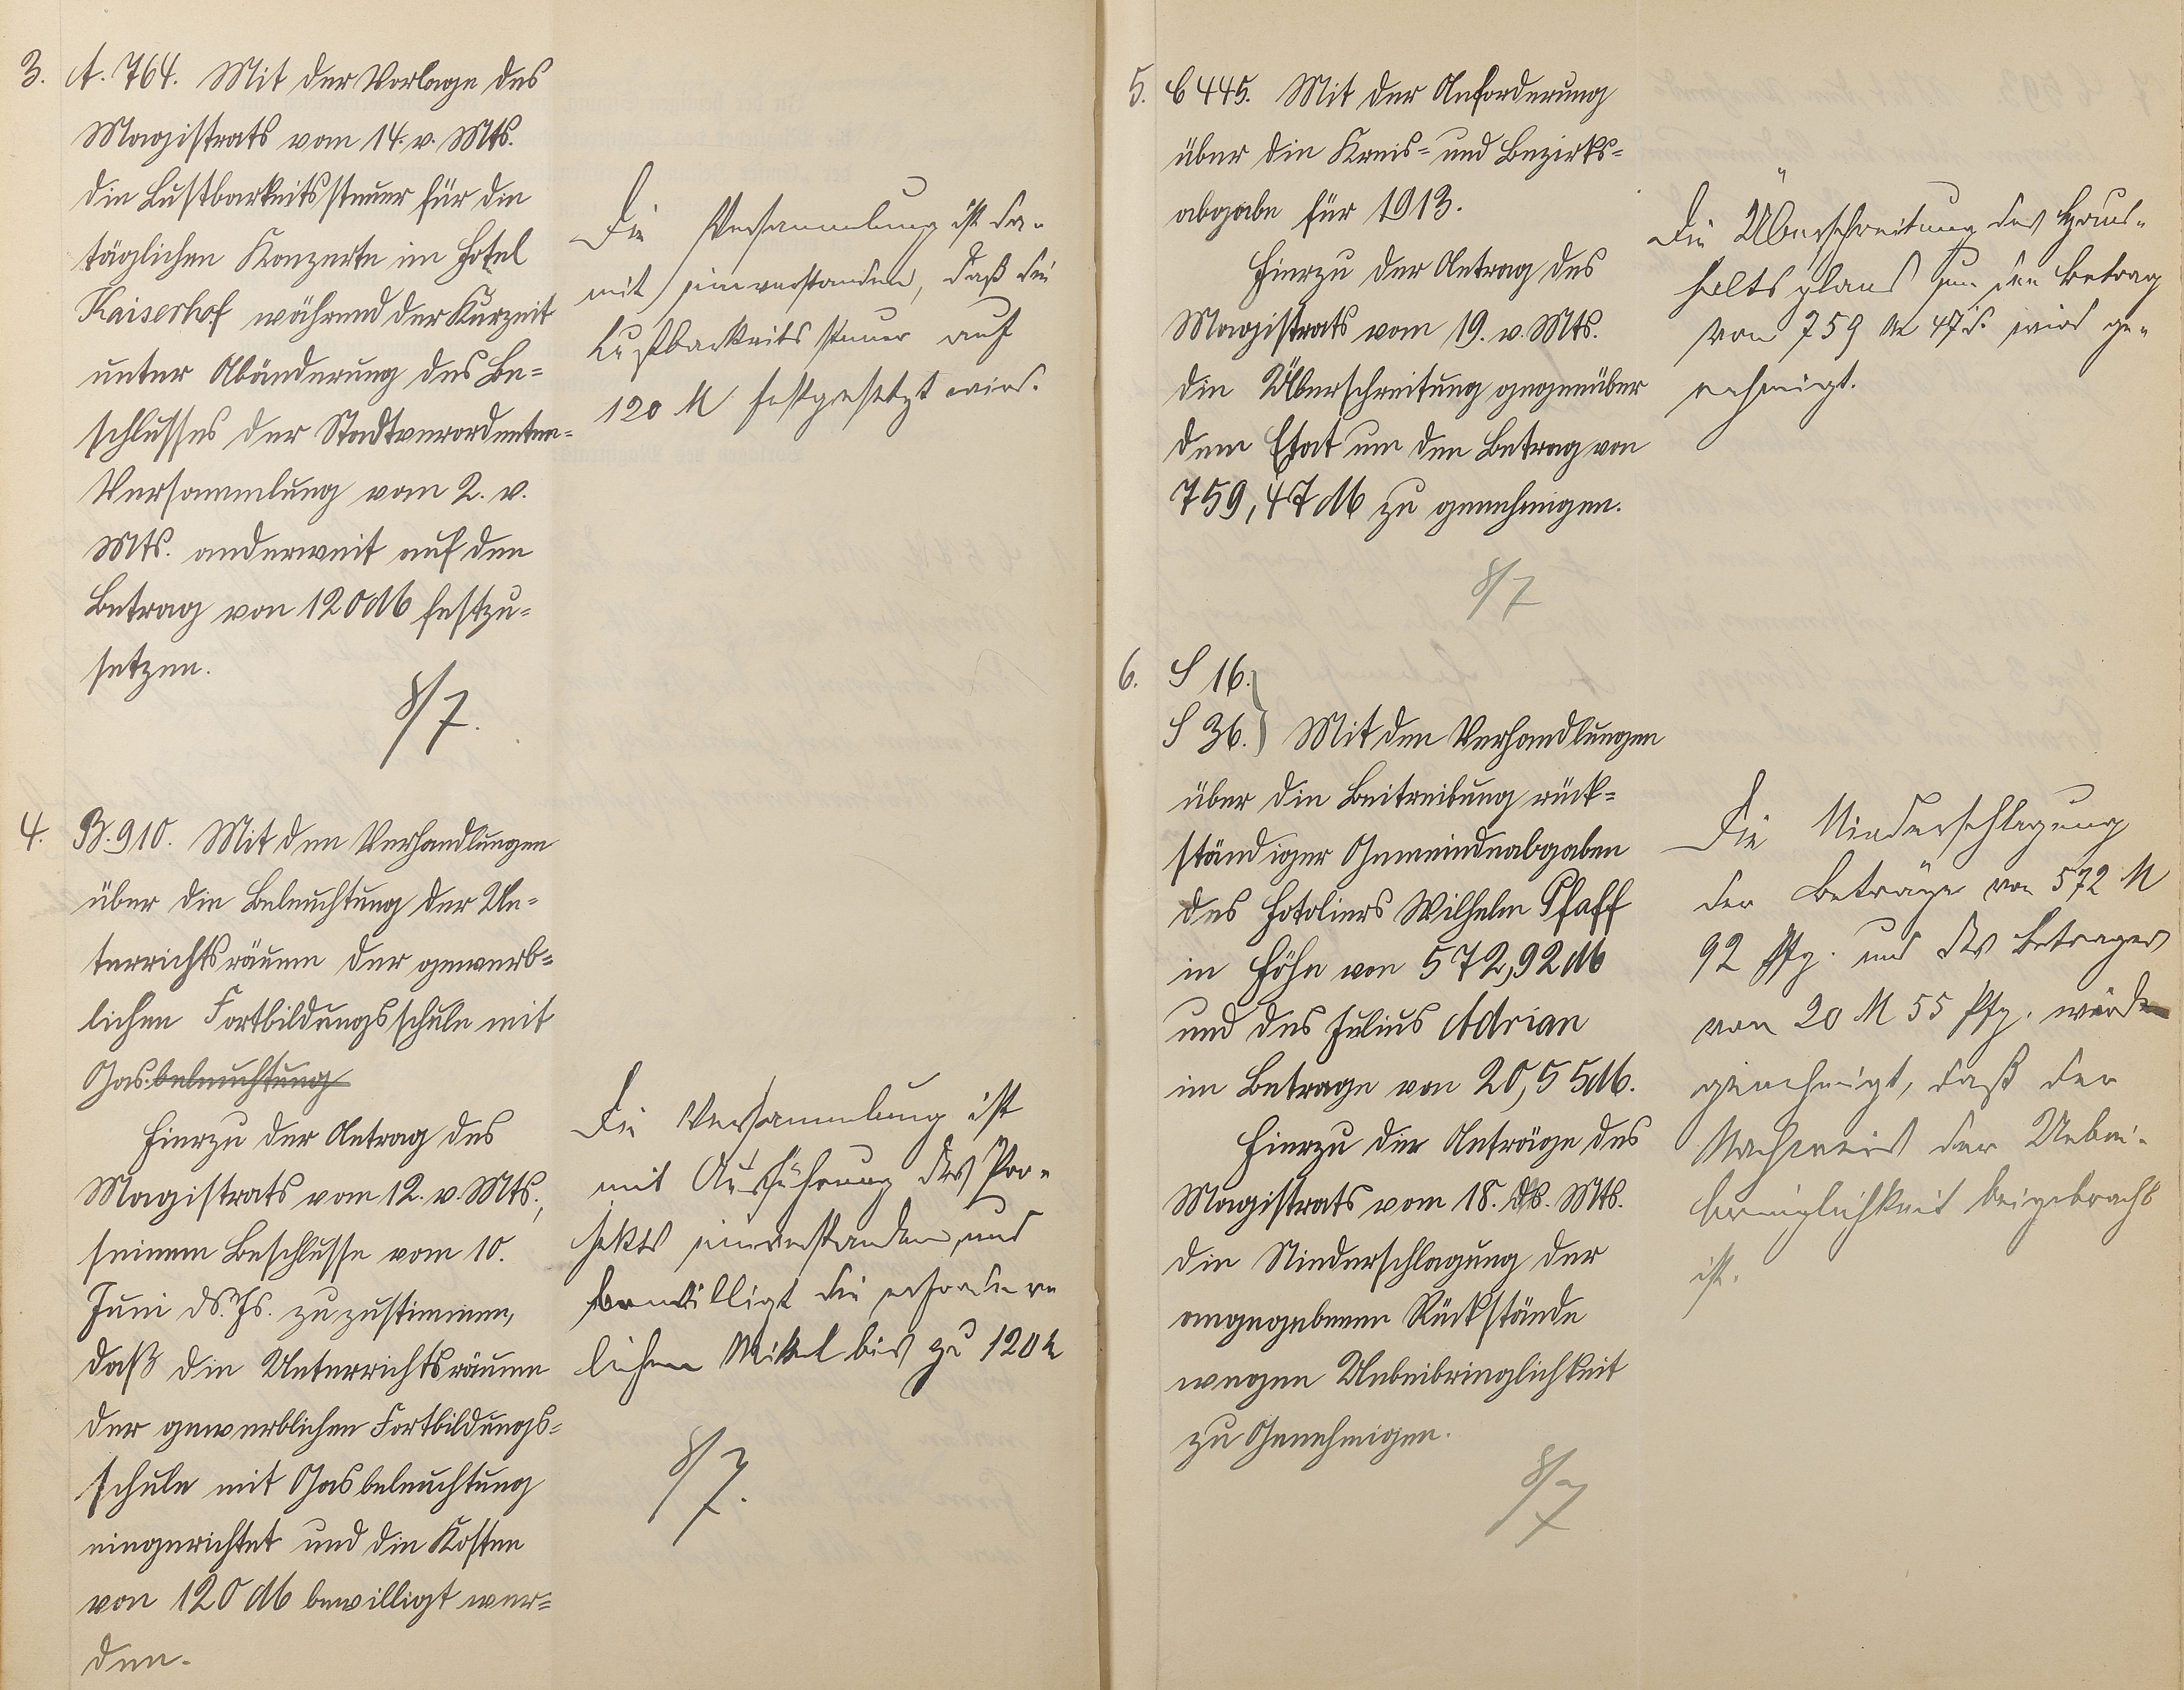 3. A. 764. Mit der Vorlage des
Magistrats vom 14. v. Mts.
die Lustbarkeitssteuer für die
täglichen Konzerte im Hotel
Kaiserhof während der Kurzeit
unter Abänderung des Be=
schlusses der Stadtverordneten=
Versammlung vom 2. v.
Mts. anderweit auf den
Betrag von 120 M festzu=
setzen.
8/7.
Die Versammlung ist da-
mit einverstanden, daß die
Lustbarkeitssteuer auf
120 M festgesetzt wird.
4. B. 910. Mit den Verhandlungen
über die Beleuchtung der Un=
terrichtsräume der gewerb=
lichen Fortbildungsschule mit
Gas. beleuchtung
Hierzu der Antrag des
Magistrats vom 12. v. Mts.,
seinem Beschlusse vom 10.
Juni ds. Js. zuzustimmen,
daß die Unterrichtsräume
der gewerblichen Fortbildungs=
schule mit Gasbeleuchtung
eingerichtet und die Kosten
von 120 M bewilligt wer=
den.
Die Versammlung ist
mit Ausführung des Pro-
jekts einverstanden und
bewilligt die erforder
lichen Mittel bis zu 120 M
8/7.
5. C 445. Mit der Anforderung
über die Kreis= und Bezirks=
abgabe für 1913.
Hierzu der Antrag des
Magistrats vom 19. v. Mts.
die Überschreitung gegenüber
dem Etat um den Betrag von
759,47 M zu genehmigen.
8/7
Die Überschreitung des Haus-
haltsplans um den Betrag
von 759 M 47 d. wird ge-
nehmigt.
6. S 16.
S 36. } Mit den Verhandlungen
über die Beitreibung rück=
ständiger Gemeindeabgaben
des Hoteliers Wilhelm Pfaff
in Höhe von 572,92 M
und des Julius Adrian
im Betrage von 20,55 M.
Hierzu die Anträge des
Magistrats vom 18. ds. Mts.
die Niederschlagung der
angegebenen Rückstände
wegen Unbeibringlichkeit
zu Genehmigen.
8/7
Die Niederschlagung
der Beträge von 572 M
92 Pfg. und des Betrages
von 20 M 55 Pfg. würde
genehmigt, daß der
Nachweis der Unbei-
bringlichkeit beigebracht
ist.